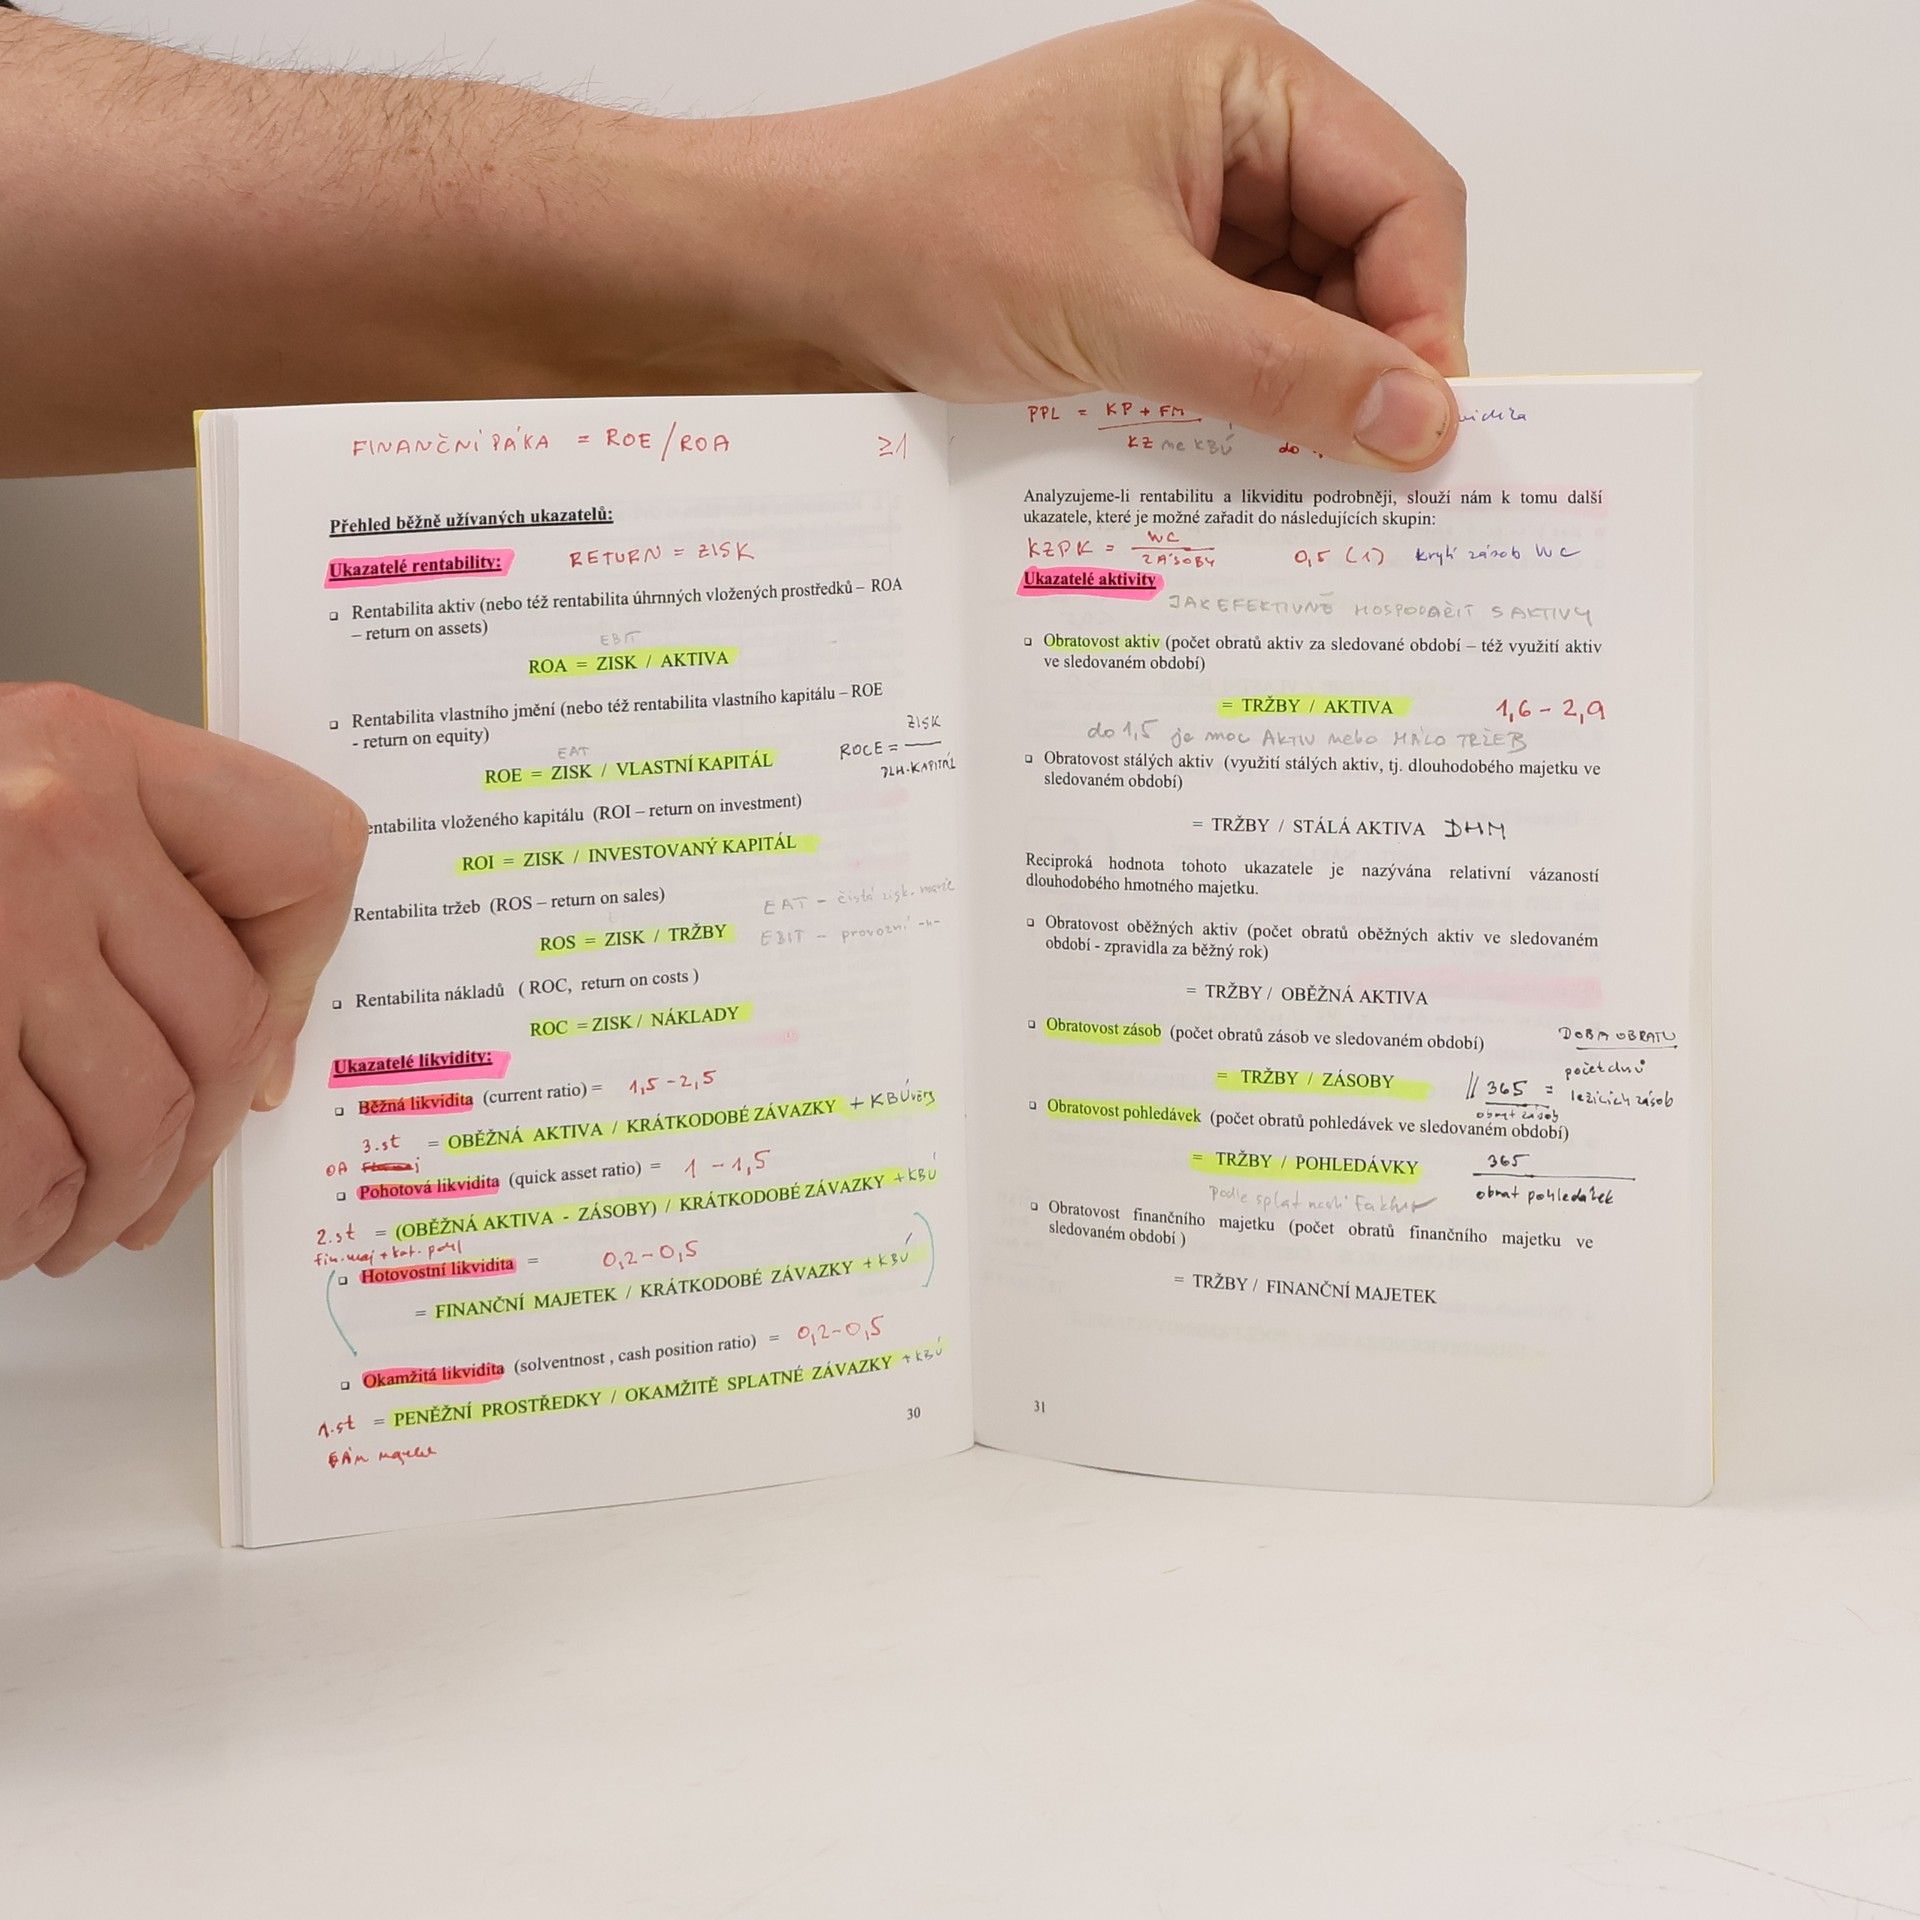 FINANČNÍ PÁKA = ROE/ROA ≥1
Přehled běžně užívaných ukazatelů:
Ukazatelé rentability: RETURN = ZISK
❑ Rentabilita aktiv (nebo též rentabilita úhrnných vložených prostředků – ROA
– return on assets)
EBIT
ROA = ZISK / AKTIVA
❑ Rentabilita vlastního jmění (nebo též rentabilita vlastního kapitálu – ROE
- return on equity)
ZISK
ROCE =
DLH. KAPITÁL
EAT
ROE = ZISK / VLASTNÍ KAPITÁL
entabilita vloženého kapitálu (ROI – return on investment)
ROI = ZISK / INVESTOVANÝ KAPITÁL
Rentabilita tržeb (ROS – return on sales)
EAT - čistá zisk. marže
ROS = ZISK / TRŽBY
EBIT - provozní -"-
❑ Rentabilita nákladů ( ROC, return on costs )
ROC = ZISK / NÁKLADY
Ukazatelé likvidity:
❑ Běžná likvidita (current ratio) = 1,5 - 2,5
3.st = OBĚŽNÁ AKTIVA / KRÁTKODOBÉ ZÁVAZKY + KBÚvěry
OA
❑ Pohotová likvidita (quick asset ratio) = 1 - 1,5
2.st = (OBĚŽNÁ AKTIVA - ZÁSOBY) / KRÁTKODOBÉ ZÁVAZKY + KBÚ
fin. maj + krt. pohl
❑ Hotovostní likvidita = 0,2 - 0,5
= FINANČNÍ MAJETEK / KRÁTKODOBÉ ZÁVAZKY + KBÚ
❑ Okamžitá likvidita (solventnost , cash position ratio) = 0,2-0,5
1.st = PENĚŽNÍ PROSTŘEDKY / OKAMŽITĚ SPLATNÉ ZÁVAZKY + KBÚ
30
PPL = KP + FM
KZ ne KBÚ do
Analyzujeme-li rentabilitu a likviditu podrobněji, slouží nám k tomu další
ukazatele, které je možné zařadit do následujících skupin:
KZPK = WC
ZÁSOBY
0,5 (1) krytí zásob WC
Ukazatelé aktivity
JAK EFEKTIVNĚ HOSPODAŘIT S AKTIVY
❑ Obratovost aktiv (počet obratů aktiv za sledované období – též využití aktiv
ve sledovaném období)
= TRŽBY / AKTIVA 1,6 - 2,9
do 1,5 je moc AKTIV nebo MÁLO TRŽEB
❑ Obratovost stálých aktiv (využití stálých aktiv, tj. dlouhodobého majetku ve
sledovaném období)
= TRŽBY / STÁLÁ AKTIVA DHM
Reciproká hodnota tohoto ukazatele je nazývána relativní vázaností
dlouhodobého hmotného majetku.
❑ Obratovost oběžných aktiv (počet obratů oběžných aktiv ve sledovaném
období - zpravidla za běžný rok)
= TRŽBY / OBĚŽNÁ AKTIVA
❑ Obratovost zásob (počet obratů zásob ve sledovaném období)
DOBA OBRATU
= TRŽBY / ZÁSOBY
// 365 = počet dnů
ležících zásob
obrat zásob
❑ Obratovost pohledávek (počet obratů pohledávek ve sledovaném období)
= TRŽBY / POHLEDÁVKY
365
obrat pohledávek
podle splatnosti faktur
❑ Obratovost finančního majetku (počet obratů finančního majetku ve
sledovaném období )
= TRŽBY / FINANČNÍ MAJETEK
31